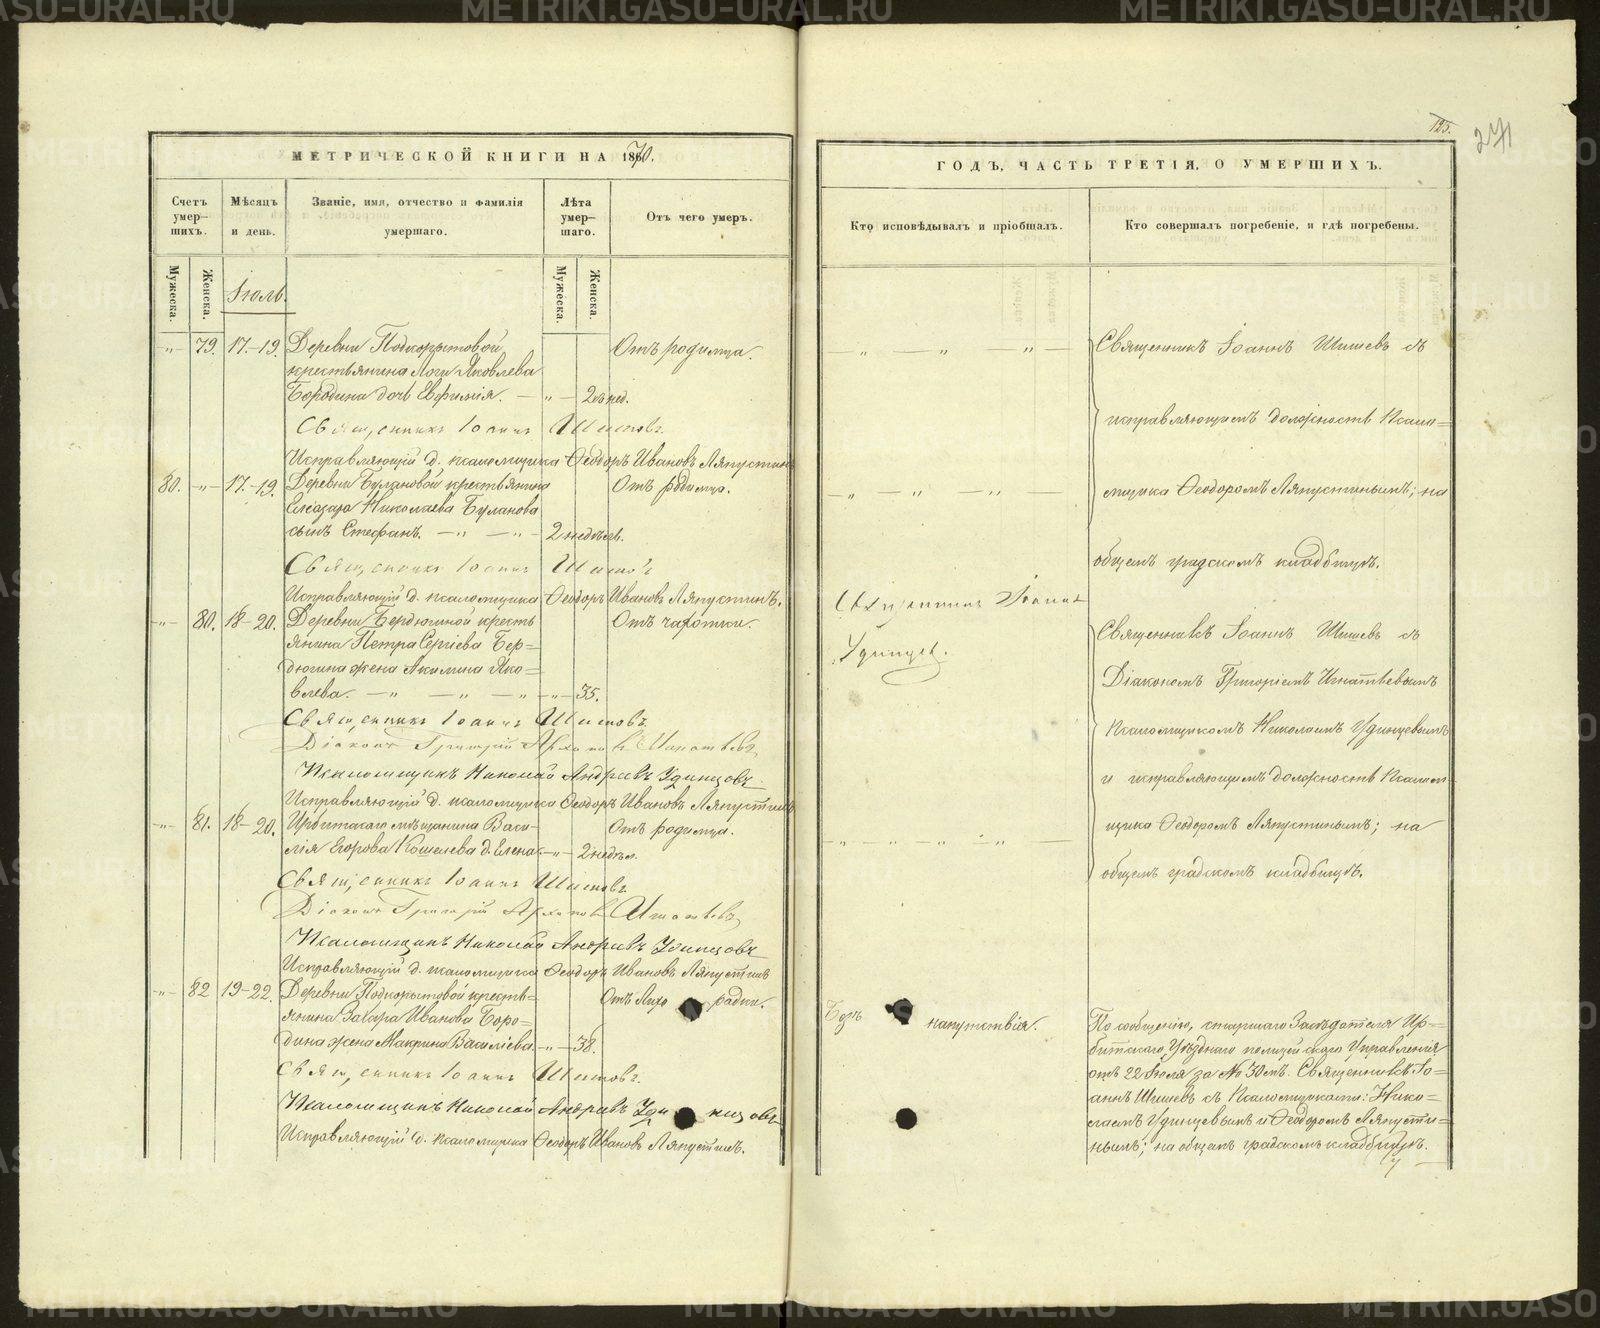 МЕТРИЧЕСКОЙ КНИГИ НА 1870.
Счетъ умер-шихъ.
Мѣсяцъ и день.
Званіе, имя, отчество и фамилія умершаго.
Лѣта умер-шаго.
Отъ чего умеръ.
Мужеска.
Женска.
Мужеска.
Женска.
Іюль.
-"- 79. 17.-19. Деревни Подкорытовой Отъ родимца.
крестьянина Логи Яковлева
Бородина дочь Евфимія. — " — 2 нед.
Священникъ Іоаннъ Шишовъ
Исправляющій д. псаломщика Ѳеодоръ Ивановъ Ляпустинъ
80. -"- 17.-19. Деревни Булановой крестьянина Отъ родимца.
Елеазара Николаева Буланова
сынъ Стефанъ. — " — " — 2 недѣли.
Священникъ Іоаннъ Шишовъ
Исправляющій д. псаломщика Ѳеодоръ Ивановъ Ляпустинъ.
-"- 80. 18-20. Деревни Бердюгиной кресть Отъ чахотки.
янина Петра Сергіева Бер=
дюгина жена Акилина Яко=
влева. — " — " — " — " — 35.
Священникъ Іоаннъ Шишовъ
Діаконъ Григорій Игнатьевъ
Псаломщикъ Николай Андреевъ Удинцовъ
Исправляющій д. псаломщика Ѳеодоръ Ивановъ Ляпустинъ
-"- 81. 18-20. Ирбитскаго мѣщанина Васи- Отъ родимца.
лія Егорова Кошелева д. Елена. — " — 2 недѣл.
Священникъ Іоаннъ Шишовъ
Діаконъ Григорій Игнатьевъ
Псаломщикъ Николай Андреевъ Удинцовъ
Исправляющій д. псаломщика Ѳеодоръ Ивановъ Ляпустинъ
-"- 82 19-22. Деревни Подкорытовой кресть= Отъ Лихо радки.
янина Захара Иванова Боро=
дина жена Макрина Васильева. — " — 38.
Священникъ Іоаннъ Шишовъ.
Псаломщикъ Николай Андреевъ Удинцовъ
Исправляющій д. псаломщика Ѳеодоръ Ивановъ Ляпустинъ.
125.
271
ГОДЪ, ЧАСТЬ ТРЕТІЯ, О УМЕРШИХЪ.
Кто исповѣдывалъ и пріобщалъ.
Кто совершалъ погребеніе, и гдѣ погребены.
— " — " — " —
Священникъ Іоаннъ Шишевъ съ
исправляющимъ должность Псалом=
— " — " — " — " —
щика Ѳеодоромъ Ляпустинымъ; на
общемъ градскомъ кладбищѣ.
Священникъ Іоаннъ
Удинцев.
Священникъ Іоаннъ Шишевъ съ
Діакономъ Григоріемъ Игнатьевымъ
Псаломщикомъ Николаемъ Удинцевымъ
и исправляющимъ должность Псалом-
щика Ѳеодоромъ Ляпустинымъ; на
— " — " — " — " —
общемъ градскомъ кладбищѣ.
Безъ напутствія.
По сообщенію, старшаго Засѣдателя Ир=
битскаго Уѣзднаго полицейскаго Управленія
отъ 22 Іюля за № 30мъ. Священникъ Іо=
аннъ Шишевъ съ Псаломщиками: Нико=
лаемъ Удинцевымъ и Ѳеодоромъ Ляпусти=
нымъ; на общемъ градскомъ кладбищѣ.
METRIKI.GASO-URAL.RU